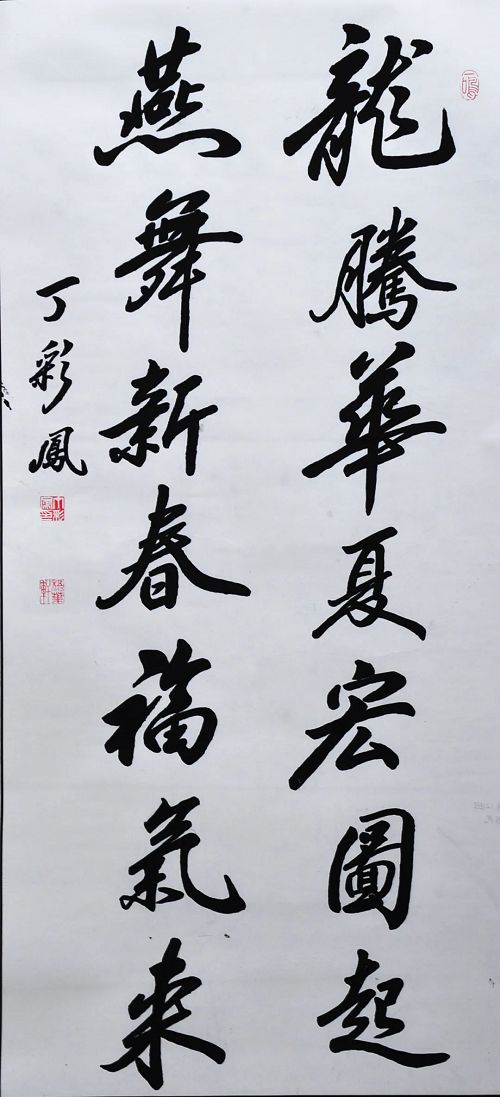 龍騰華夏宏圖起
燕舞新春福氣来
丁彩鳳